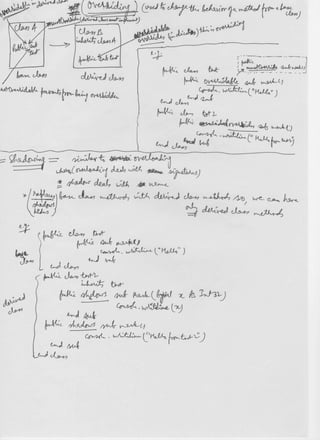 overridable = derived class
Overriding (used to change the behavior of a method from a base class)
Class A
Public sub test
base class
Class B
inherits class A
public sub test
derived class
notOverridable prevents from being overridden
overrides (indicates) this is overriding
e.g:
public class test
public overridable sub mark()
console.writeline("Hello")
end sub
end class
public class test2
public overrides sub mark()
console.writeline("Hello from test2")
end sub
end class
public
notOverridable sub mark()
= Shadowing = similar to overloading
(overloading deals with signatures)
* shadow deals with name
* replaces base class methods with derived class methods so, we can have
shadows only derived class methods
e.g:
base class
public class test
public sub mark()
console.writeline("Hello")
end sub
end class
derived class
public class test2
inherits test
public shadows sub mark(byval x As Int32)
console.writeline(x)
end sub
public shadows sub mark()
console.writeline("Hello from test2")
end sub
end class